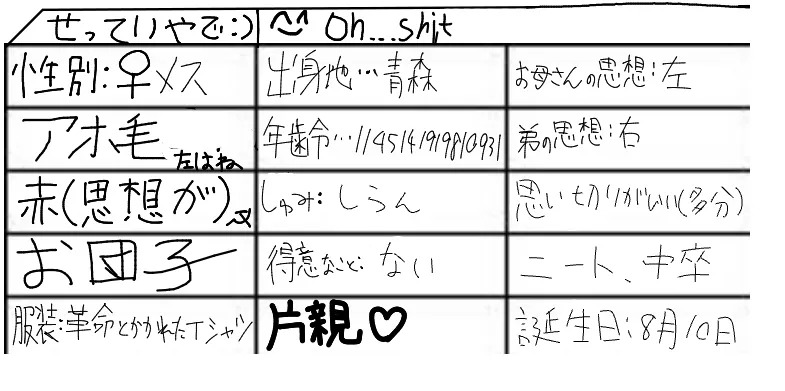 せっていやで:) Oh...shit
性別:♀メス 出身地…青森 お母さんの思想:左
アホ毛 左はね 年齢…1145141919810931 弟の思想:右
赤(思想が) しゅみ:しらん 思い切りがいい(多分)
お団子 得意なこと:ない ニート、中卒
服装:革命とかかれたTシャツ 片親♡ 誕生日:8月10日